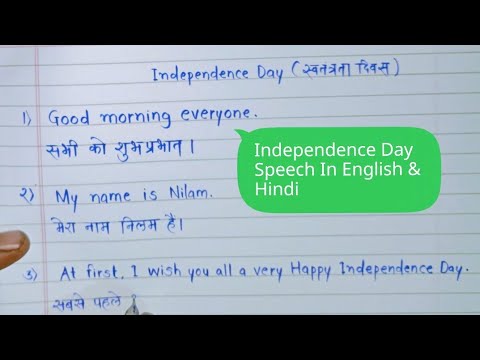 Independence Day (स्वतंत्रता दिवस)
1) Good morning everyone.
सभी को शुभप्रभात।
Independence Day
Speech In English &
Hindi
2) My name is Nilam.
मेरा नाम निलम है।
3) At first, I wish you all a very Happy Independence Day.
सबसे पहले